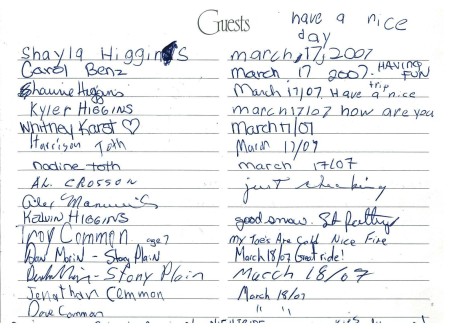 Guests have a nice day
Shayla Higgins march, 17, 2007
Carol Benz March 17 2007. HAVING FUN
Shawne Higgins March 17/07, Have a nice trip
KYLER HIGGINS march 17/07 how are you
Whitney Karst ♡ March 17/07
Harrison Toth March 17/07
nadine toth march 17/07
AL. CROSSON just checking
Alex
KELVIN HIGGINS good snow. St
Troy Common age 7 my Toe's Are Cold Nice Fire
Dan Morin - Stony Plain March 18/07 Great ride!
Morin - Stony Plain March 18/07
Jonathan Common March 18/07
Dave Common " "